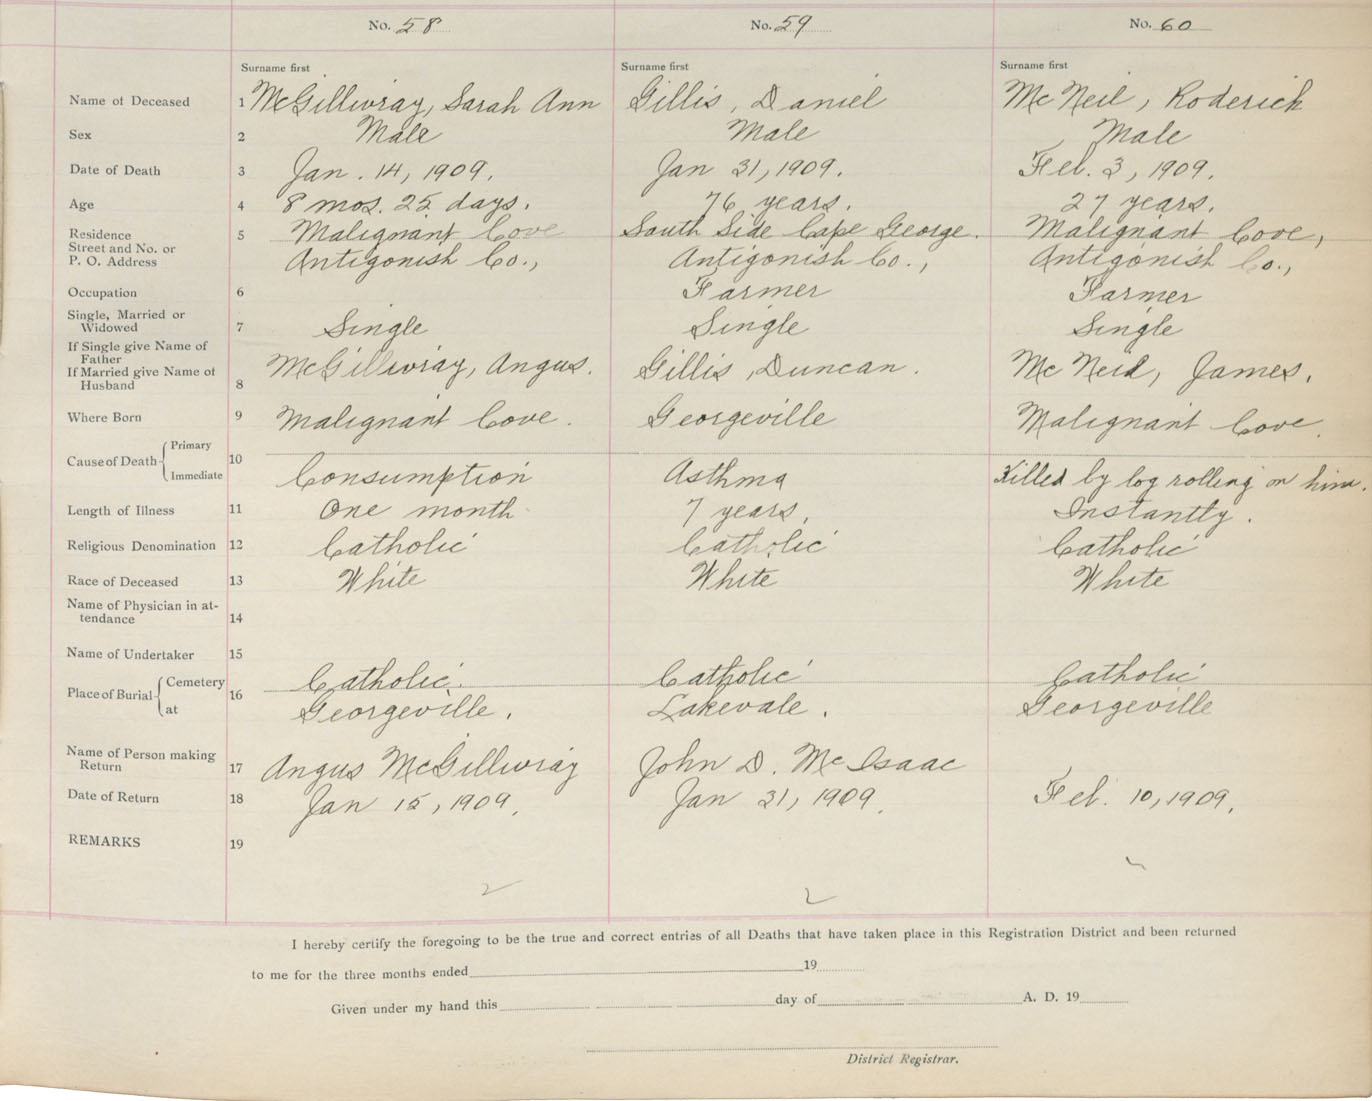 No. 58 No. 59 No. 60
Surname first Surname first Surname first
Name of Deceased 1 McGillivray, Sarah Ann Gillis, Daniel McNeil, Roderick
Sex 2 Male Male Male
Date of Death 3 Jan. 14, 1909. Jan 31, 1909. Feb. 3, 1909.
Age 4 8 mos. 25 days. 76 years. 27 years.
Residence 5 Malignant Cove South Side Cape George. Malignant Cove,
Street and No. or
P. O. Address Antigonish Co., Antigonish Co., Antigonish Co.,
Occupation 6 Farmer Farmer
Single, Married or
Widowed 7 Single Single Single
If Single give Name of
Father
If Married give Name of McGillivray, Angus. Gillis, Duncan. McNeil, James.
Husband 8
Where Born 9 Malignant Cove. Georgeville Malignant Cove.
Cause of Death Primary 10
Immediate Consumption Asthma Killed by log rolling on him.
Length of Illness 11 One month 7 years, Instantly.
Religious Denomination 12 Catholic Catholic Catholic
Race of Deceased 13 White White White
Name of Physician in at-
tendance 14
Name of Undertaker 15
Place of Burial Cemetery 16 Catholic. Catholic Catholic
at Georgeville. Lakevale. Georgeville
Name of Person making
Return 17 Angus McGillivray John D. McIsaac
Date of Return 18 Jan 15, 1909. Jan 31, 1909. Feb. 10, 1909.
REMARKS 19
I hereby certify the foregoing to be the true and correct entries of all Deaths that have taken place in this Registration District and been returned
to me for the three months ended 19
Given under my hand this day of A. D. 19
District Registrar.